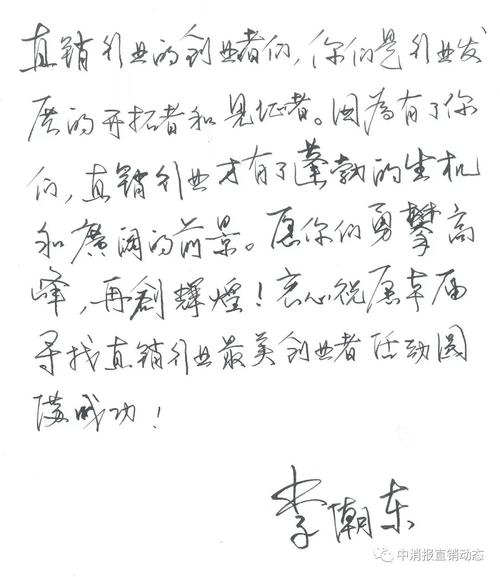 直销行业的创业者们，你们是行业发
展的开拓者和见证者。因为有了你
们，直销行业才有了蓬勃的生机
和廣阔的前景。愿你们勇攀高
峰，再創輝煌！衷心祝愿本届
寻找直销行业最美创业者活动圆
满成功！
李潮东
中消报直销动态